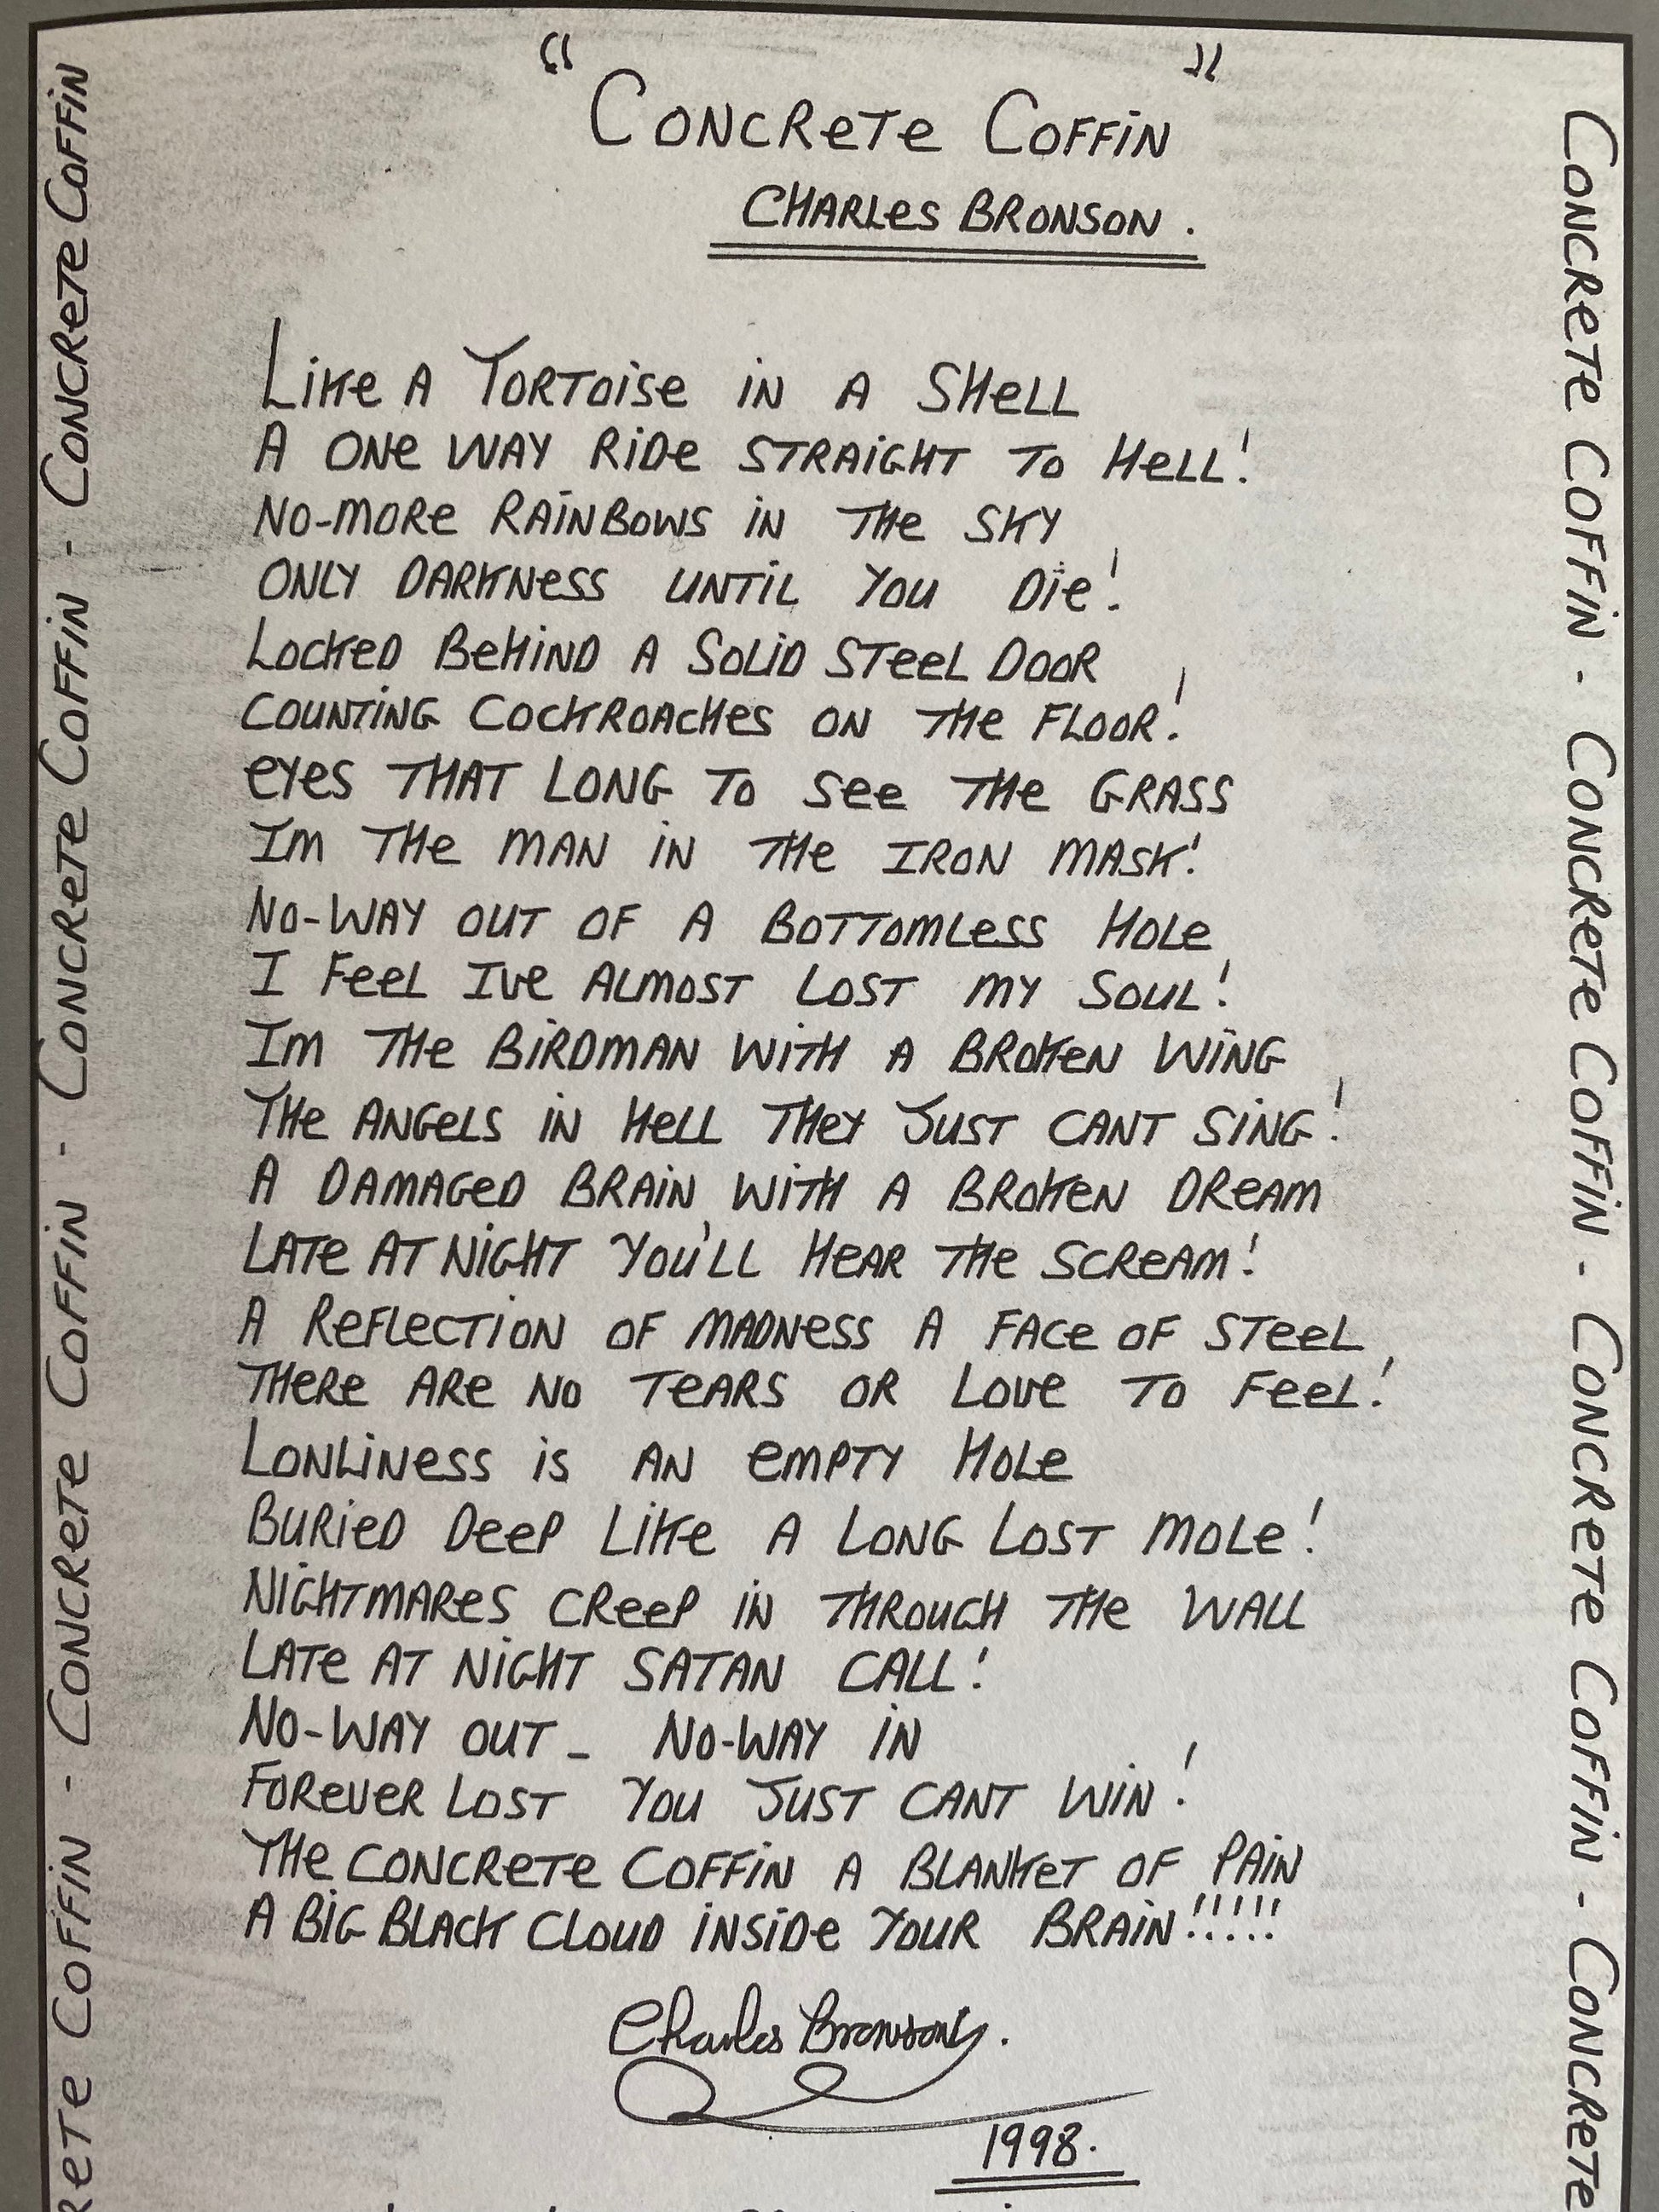 "Concrete Coffin"
Charles Bronson.
Like a Tortoise in a Shell
A one way ride straight to Hell!
No-more rainbows in the sky
Only darkness until you die!
Locked behind a solid steel door
Counting cockroaches on the floor!
eyes that long to see the grass
Im the man in the Iron mask!
No-way out of a bottomless hole
I feel Ive almost lost my soul!
Im the Birdman with a broken wing
The angels in hell they just cant sing!
A damaged brain with a broken dream
Late at night you'll hear the scream!
A reflection of madness a face of steel
There are no tears or love to feel!
Lonliness is an empty hole
Buried deep like a long lost mole!
Nightmares creep in through the wall
Late at night Satan call!
No-way out - No-way in
Forever lost you just cant win!
The concrete coffin a blanket of pain
A big black cloud inside your brain!!!!!
Charles Bronson.
1998.
rete Coffin - Concrete Coffin - Concrete Coffin - Concrete Coffin
Concrete Coffin - Concrete Coffin - Concrete Coffin - Concrete